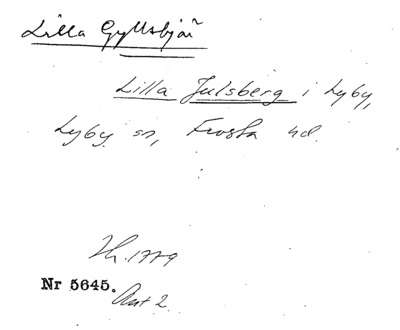 Lilla Gyllsbjär
Lilla Julsberg i Lyby,
Lyby sn, Frosta hd.
Hr. 1779
Nr 5645.
Akt 2